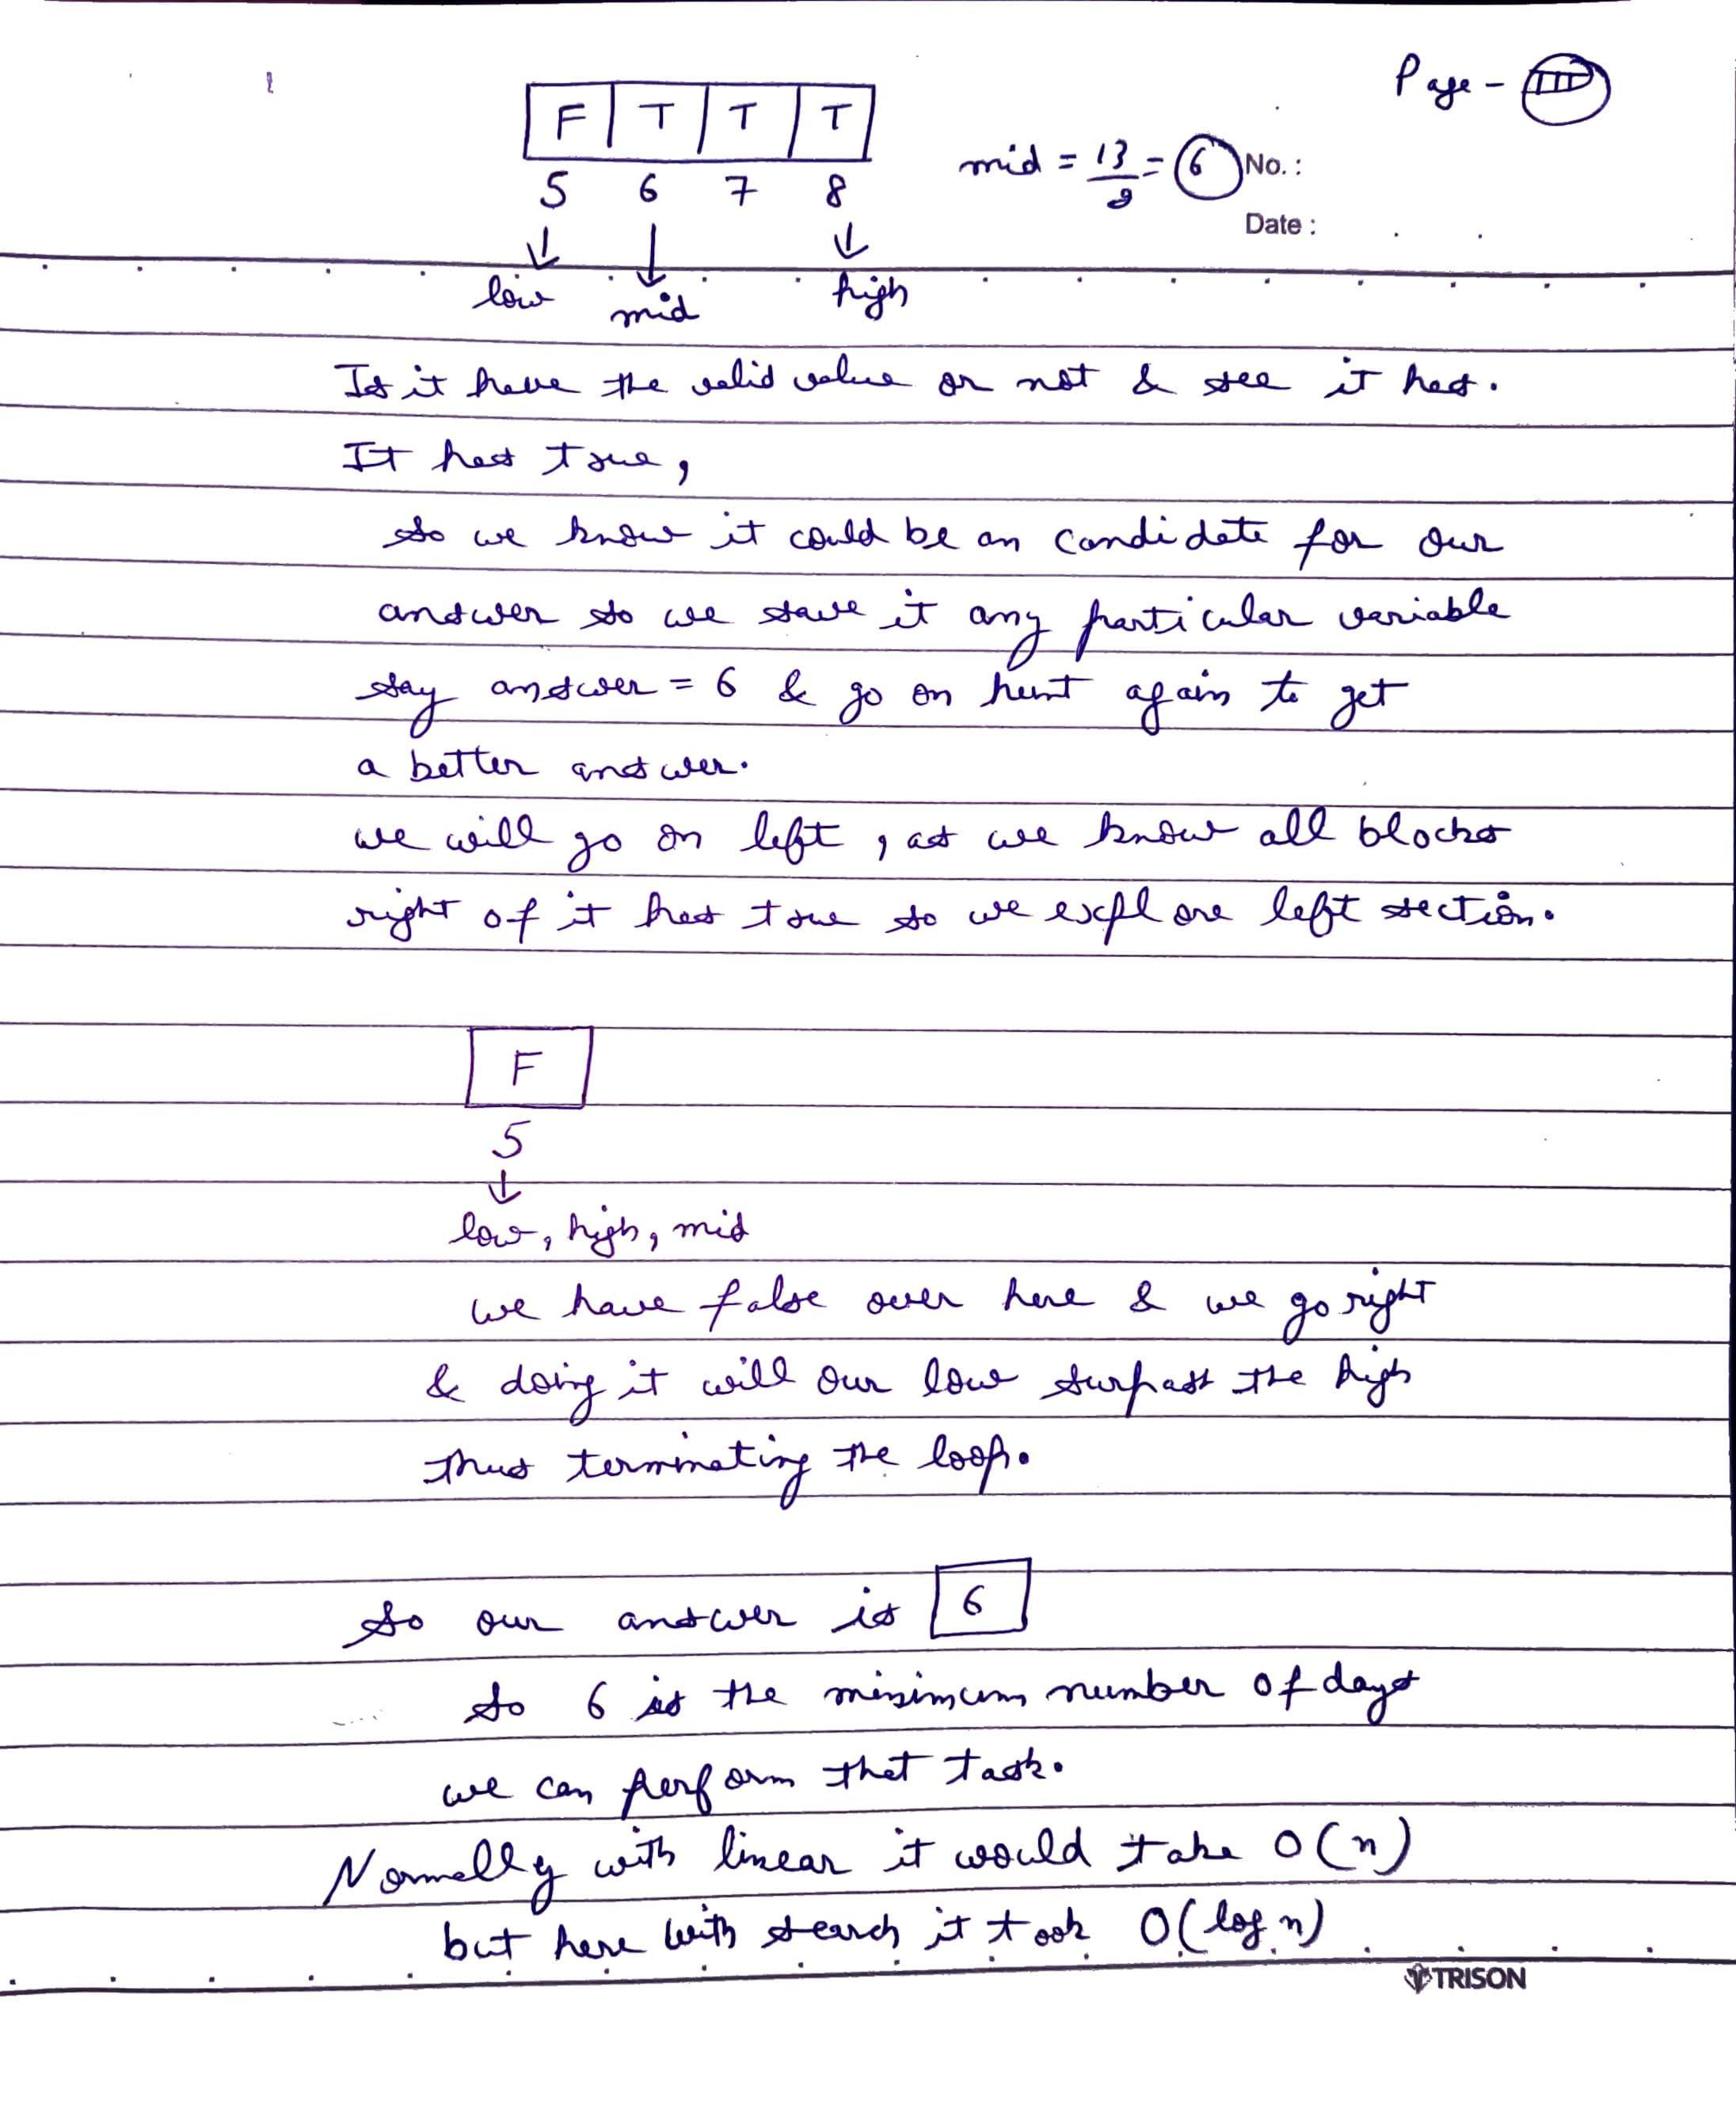 Page - III
F T T T
5 6 7 8
mid = 13/2 = 6
No. :
Date :
low mid high
Is it have the valid value or not & see it has.
It has true,
So we know it could be an candidate for our
answer so we save it any particular variable
say answer = 6 & go on hunt again to get
a better answer.
we will go on left, as we know all blocks
right of it has true so we explore left section.
F
5
low, high, mid
we have false over here & we go right
& doing it will our low surpass the high
thus terminating the loop.
So our answer is 6
So 6 is the minimum number of days
we can perform that task.
Normally with linear it would take O(n)
but here with search it took O(log n)
TRISON